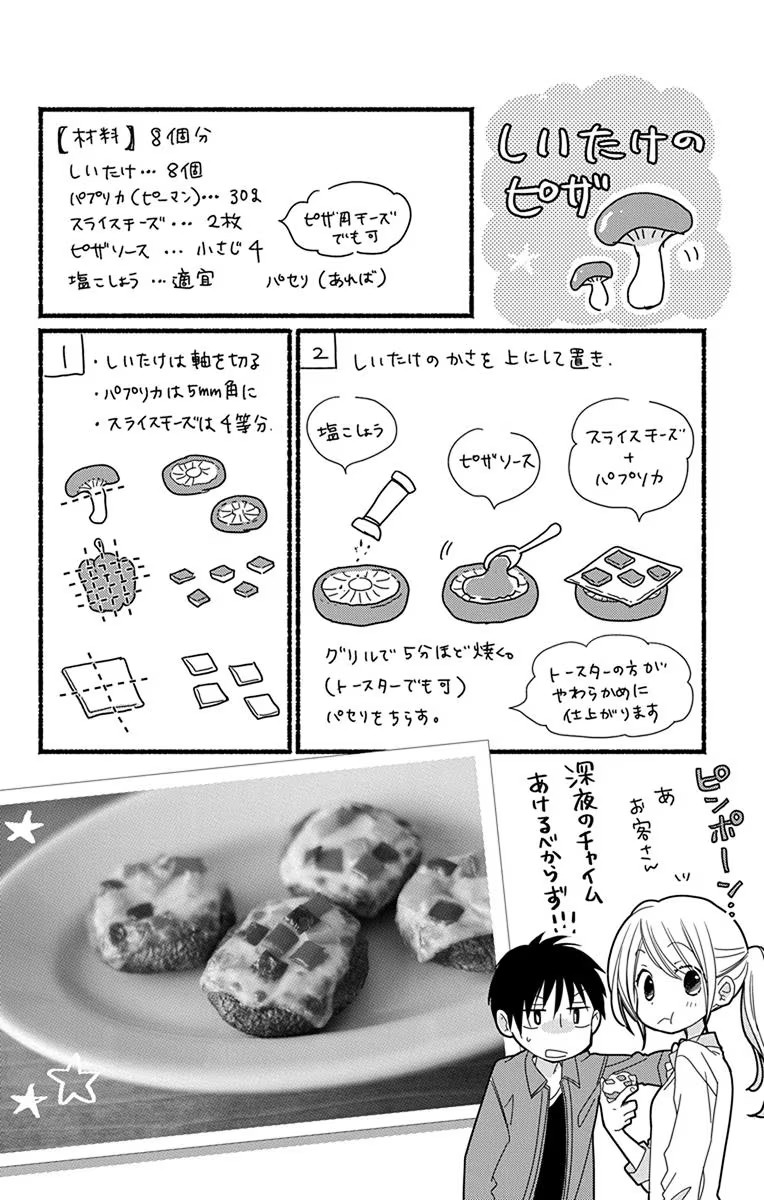 しいたけの
ピザ
【材料】 8個分
しいたけ… 8個
パプリカ(ピーマン)… 30g
スライスチーズ… 2枚
ピザソース … 小さじ4
塩こしょう …適宜
パセリ(あれば)
ピザ用チーズ
でも可
1
・しいたけは軸を切る
・パプリカは5mm角に
・スライスチーズは4等分.
2
しいたけのかさを上にして置き.
塩こしょう
ピザソース
スライスチーズ
+
パプリカ
グリルで5分ほど焼く。
(トースターでも可)
パセリをちらす。
トースターの方が
やわらかめに
仕上がります
ピンポーン…
あ
お客さん
深夜のチャイム
あけるべからず!!!